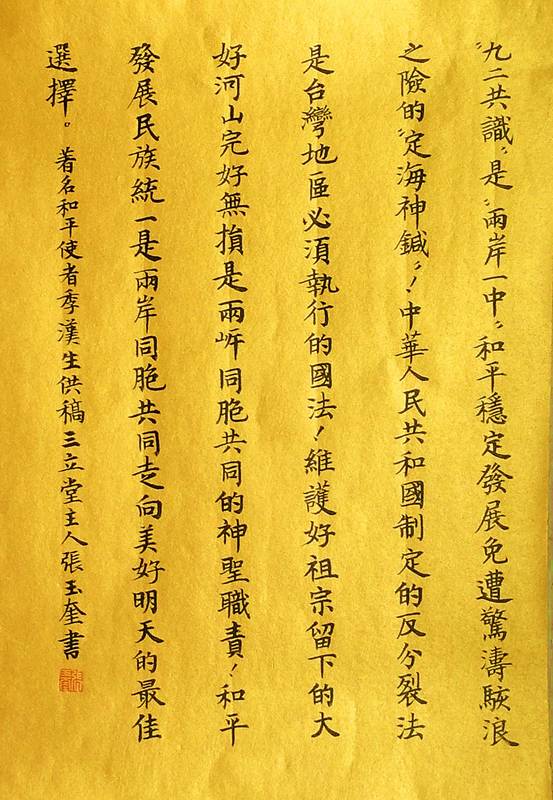 “九二共識”是“兩岸一中”和平穩定發展免遭驚濤駭浪
之險的“定海神鍼”！中華人民共和國制定的反分裂法
是台灣地區必須執行的國法！維護好祖宗留下的大
好河山完好無損是兩岈同胞共同的神聖職責！和平
發展民族統一是兩岸同胞共同走向美好明天的最佳
選擇。著名和平使者季漢生供稿三立堂主人張玉奎書